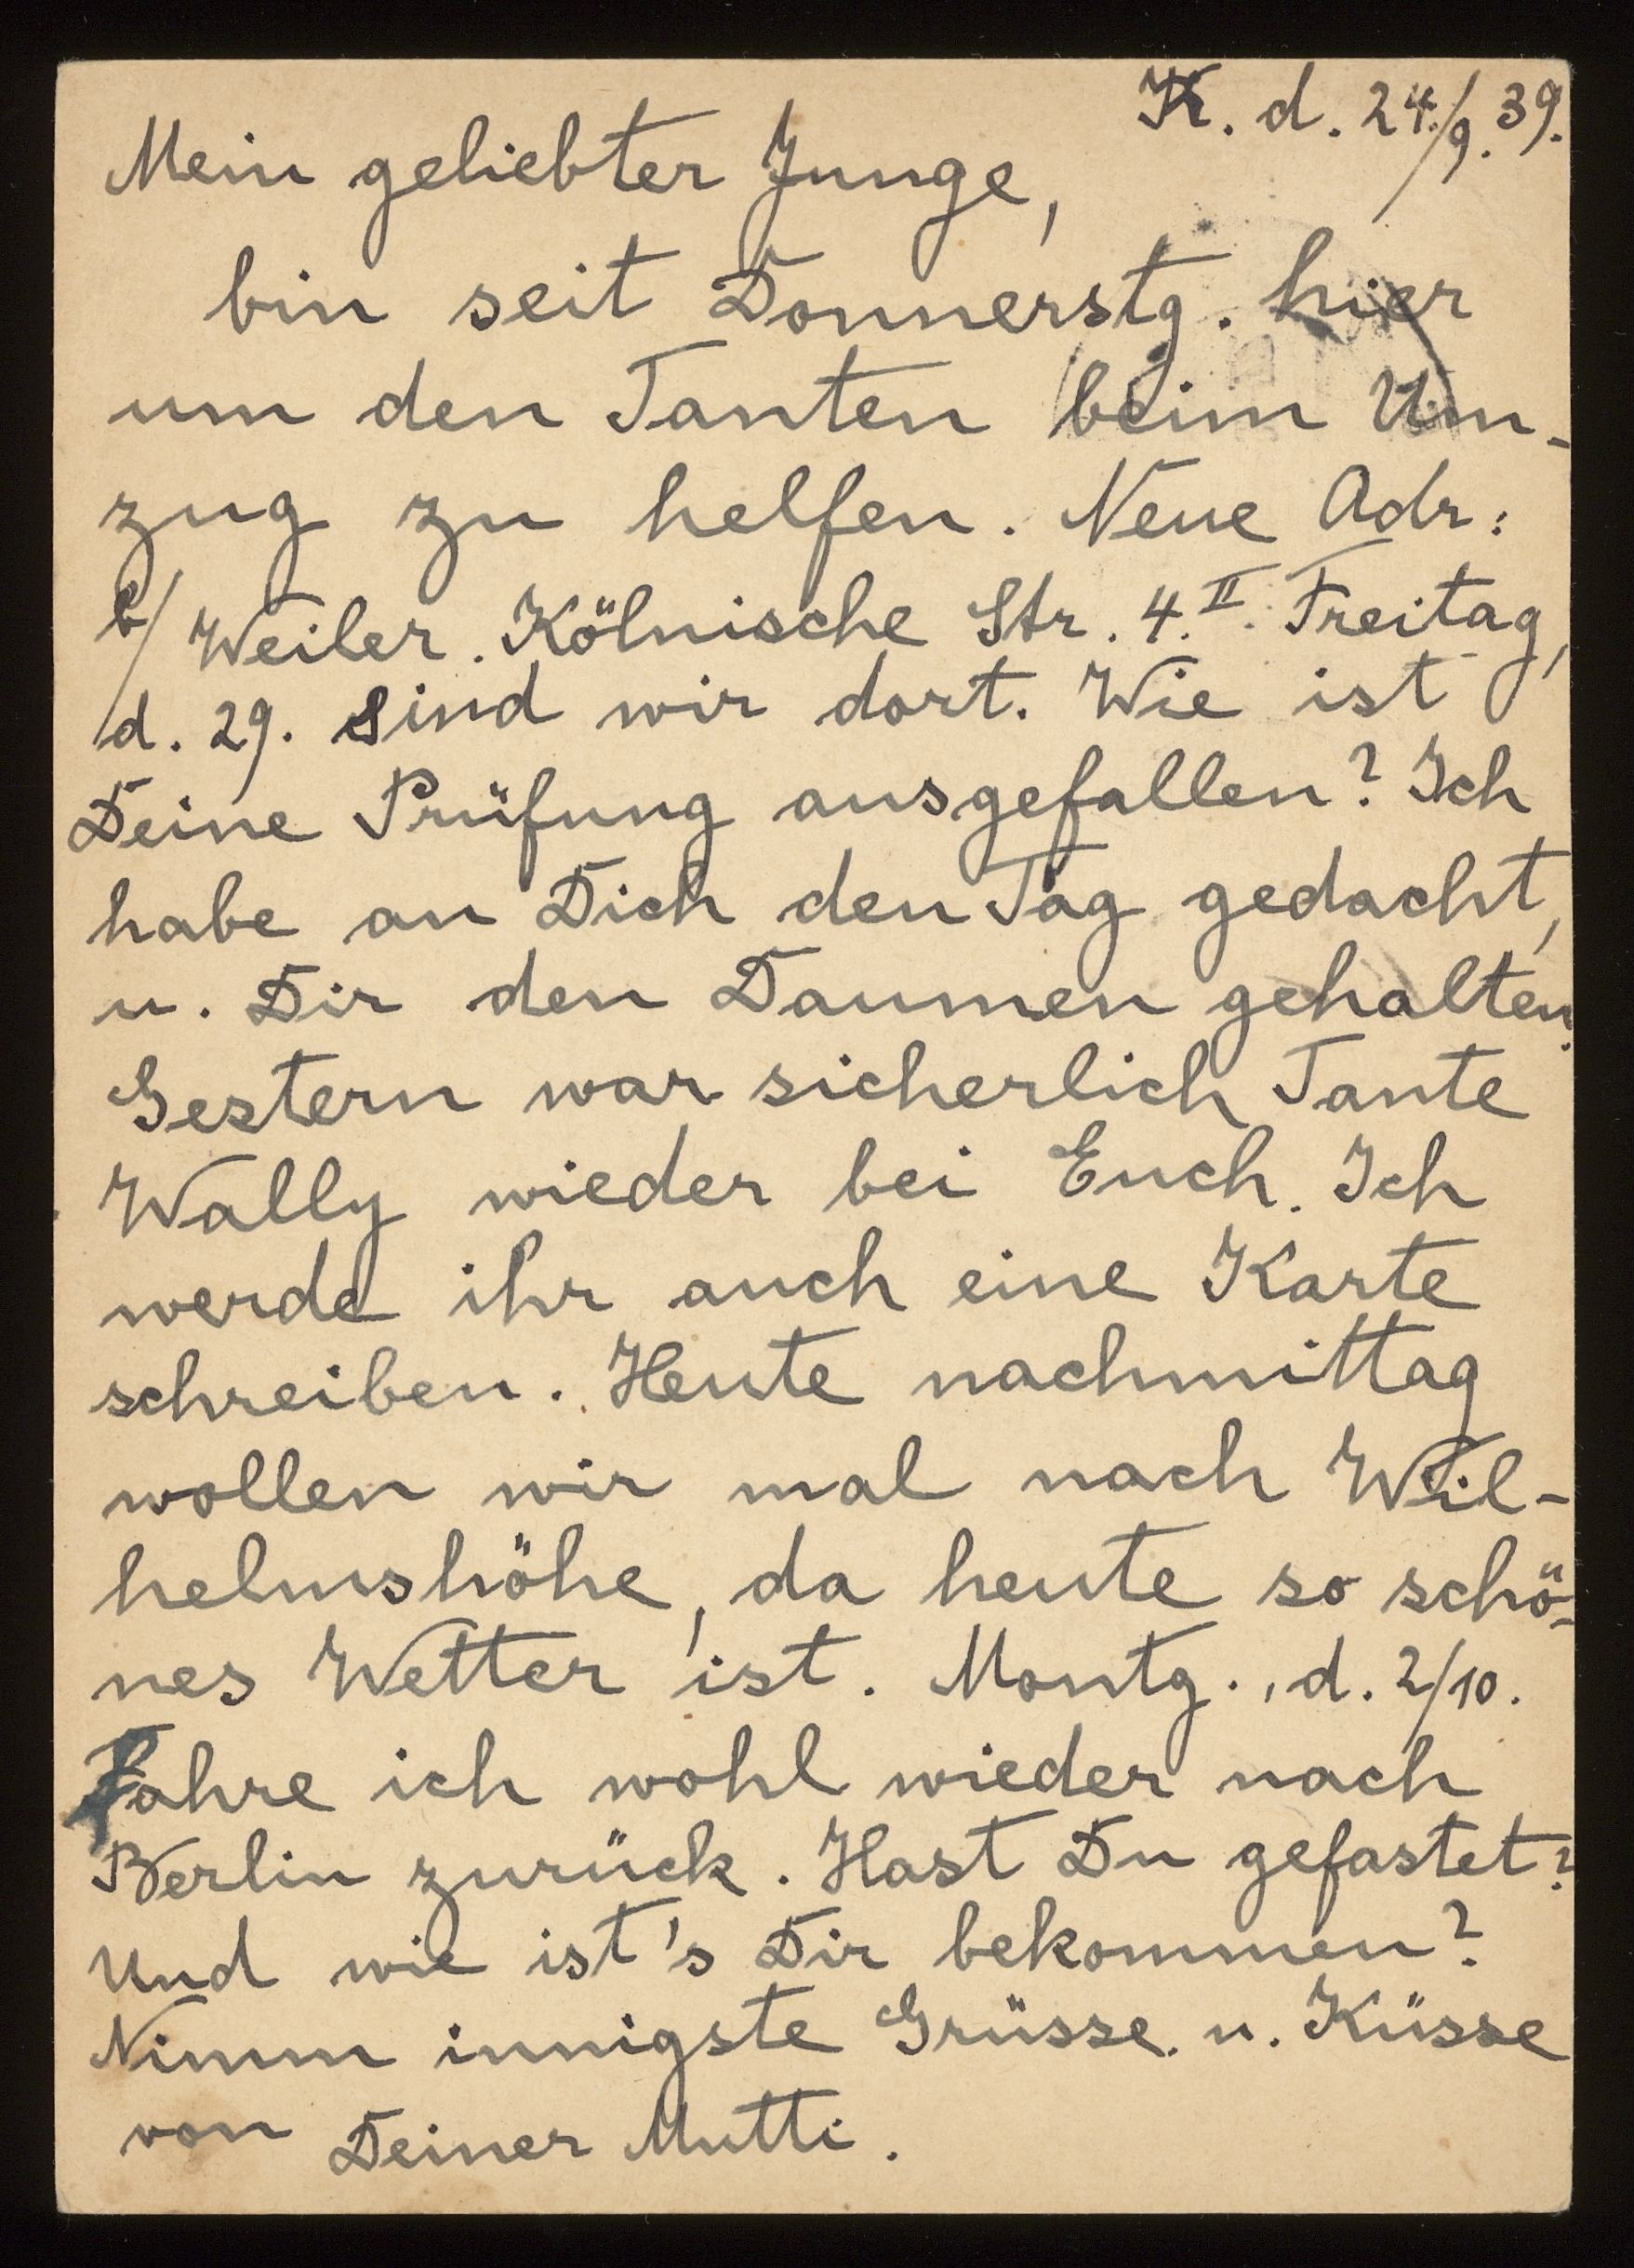 K. d. 24./9. 39.
Mein geliebter Junge,
bin seit Donnerstg. hier
um den Tanten beim Um-
zug zu helfen. Neue Adr:
b/ Weiler. Kölnische Str. 4.II. Freitag,
d. 29. sind wir dort. Wie ist
Deine Prüfung ausgefallen? Ich
habe an Dich den Tag gedacht,
u. Dir den Daumen gehalten.
Gestern war sicherlich Tante
Wally wieder bei Euch. Ich
werde ihr auch eine Karte
schreiben. Heute nachmittag
wollen wir mal nach Wil-
helmshöhe, da heute so schö-
nes Wetter ist. Montg., d. 2/10.
fahre ich wohl wieder nach
Berlin zurück. Hast Du gefastet?
Und wie ist's Dir bekommen?
Nimm innigste Grüsse. u. Küsse
von Deiner Mutti.